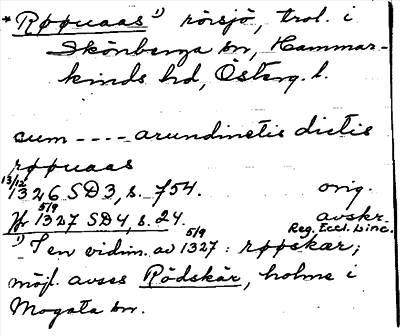 *Røøuaas¹⁾ rörsjö, trol. i
Skönberga sn, Hammar-
kinds hd, Österg. l.
cum ---- arundinetis dictis
røøuaas
13/12 1326 SD3, s. 754. orig.
Jfr 5/9 1327 SD4, s. 24. avskr.
Reg. Eccl. Linc.
¹⁾ I en vidim. av 5/9 1327: røøskær;
möjl. avses Rödskär, holme i
Mogata sn.